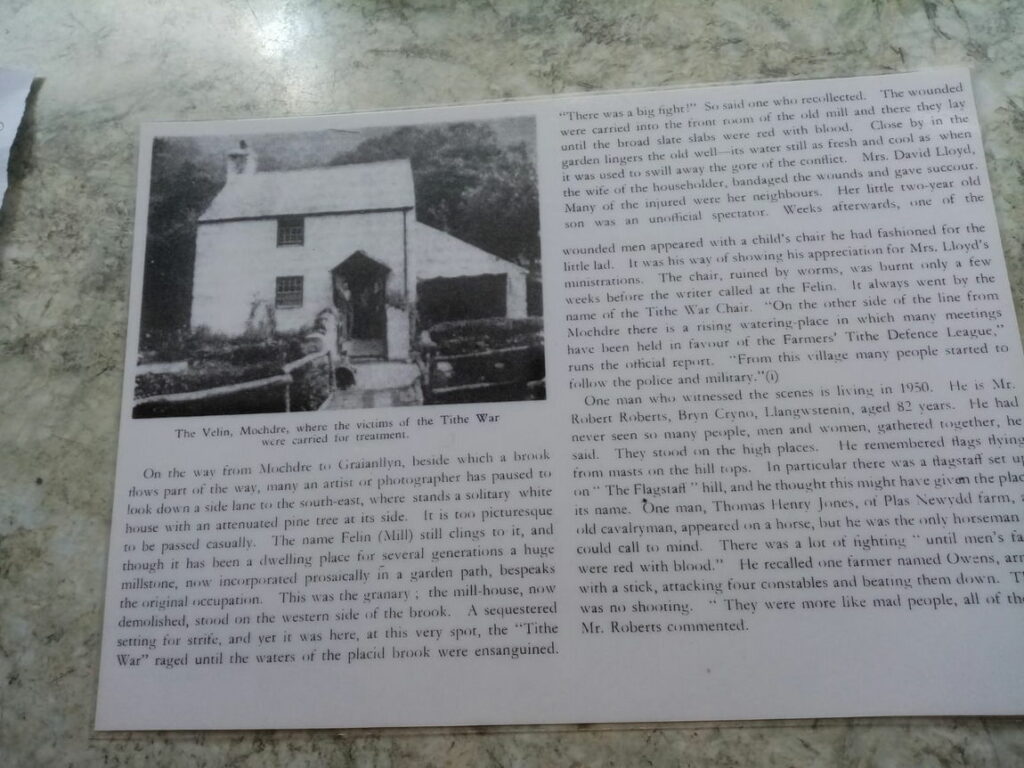 The Velin, Mochdre, where the victims of the Tithe War
were carried for treatment.
On the way from Mochdre to Graianllyn, beside which a brook
flows part of the way, many an artist or photographer has paused to
look down a side lane to the south-east, where stands a solitary white
house with an attenuated pine tree at its side. It is too picturesque
to be passed casually. The name Felin (Mill) still clings to it, and
though it has been a dwelling place for several generations a huge
millstone, now incorporated prosaically in a garden path, bespeaks
the original occupation. This was the granary ; the mill-house, now
demolished, stood on the western side of the brook. A sequestered
setting for strife, and yet it was here, at this very spot, the "Tithe
War" raged until the waters of the placid brook were ensanguined.
"There was a big fight!" So said one who recollected. The wounded
were carried into the front room of the old mill and there they lay
until the broad slate slabs were red with blood. Close by in the
garden lingers the old well—its water still as fresh and cool as when
it was used to swill away the gore of the conflict. Mrs. David Lloyd,
the wife of the householder, bandaged the wounds and gave succour.
Many of the injured were her neighbours. Her little two-year old
son was an unofficial spectator. Weeks afterwards, one of the
wounded men appeared with a child's chair he had fashioned for the
little lad. It was his way of showing his appreciation for Mrs. Lloyd's
ministrations. The chair, ruined by worms, was burnt only a few
weeks before the writer called at the Felin. It always went by the
name of the Tithe War Chair. "On the other side of the line from
Mochdre there is a rising watering-place in which many meetings
have been held in favour of the Farmers' Tithe Defence League,"
runs the official report. "From this village many people started to
follow the police and military."(i)
One man who witnessed the scenes is living in 1950. He is Mr.
Robert Roberts, Bryn Cryno, Llangwstenin, aged 82 years. He had
never seen so many people, men and women, gathered together, he
said. They stood on the high places. He remembered flags flying
from masts on the hill tops. In particular there was a flagstaff set up
on " The Flagstaff " hill, and he thought this might have given the plac
its name. One man, Thomas Henry Jones, of Plas Newydd farm,
old cavalryman, appeared on a horse, but he was the only horseman
could call to mind. There was a lot of fighting " until men's fa
were red with blood." He recalled one farmer named Owens, arm
with a stick, attacking four constables and beating them down. Th
was no shooting. " They were more like mad people, all of the
Mr. Roberts commented.